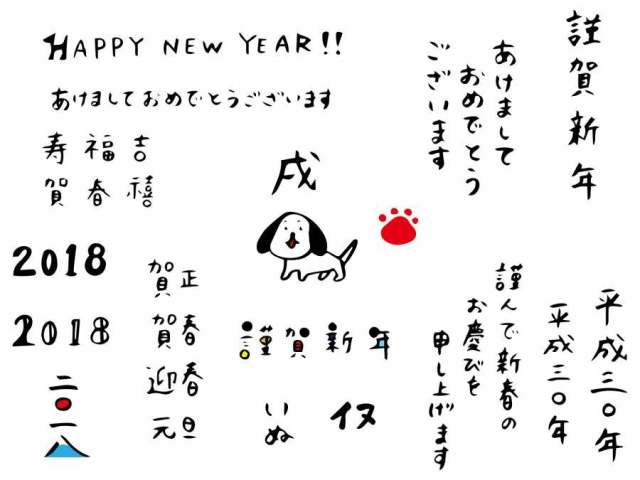 HAPPY NEW YEAR!!
あけましておめでとうございます
寿 福 吉
賀 春 禧
2018
2018
二〇一八
賀正
賀春
迎春
元旦
戌
謹賀新年
いぬ
イヌ
謹賀新年
あけまして
おめでとう
ございます
謹んで新春の
お慶びを
申し上げます
平成三〇年
平成三〇年